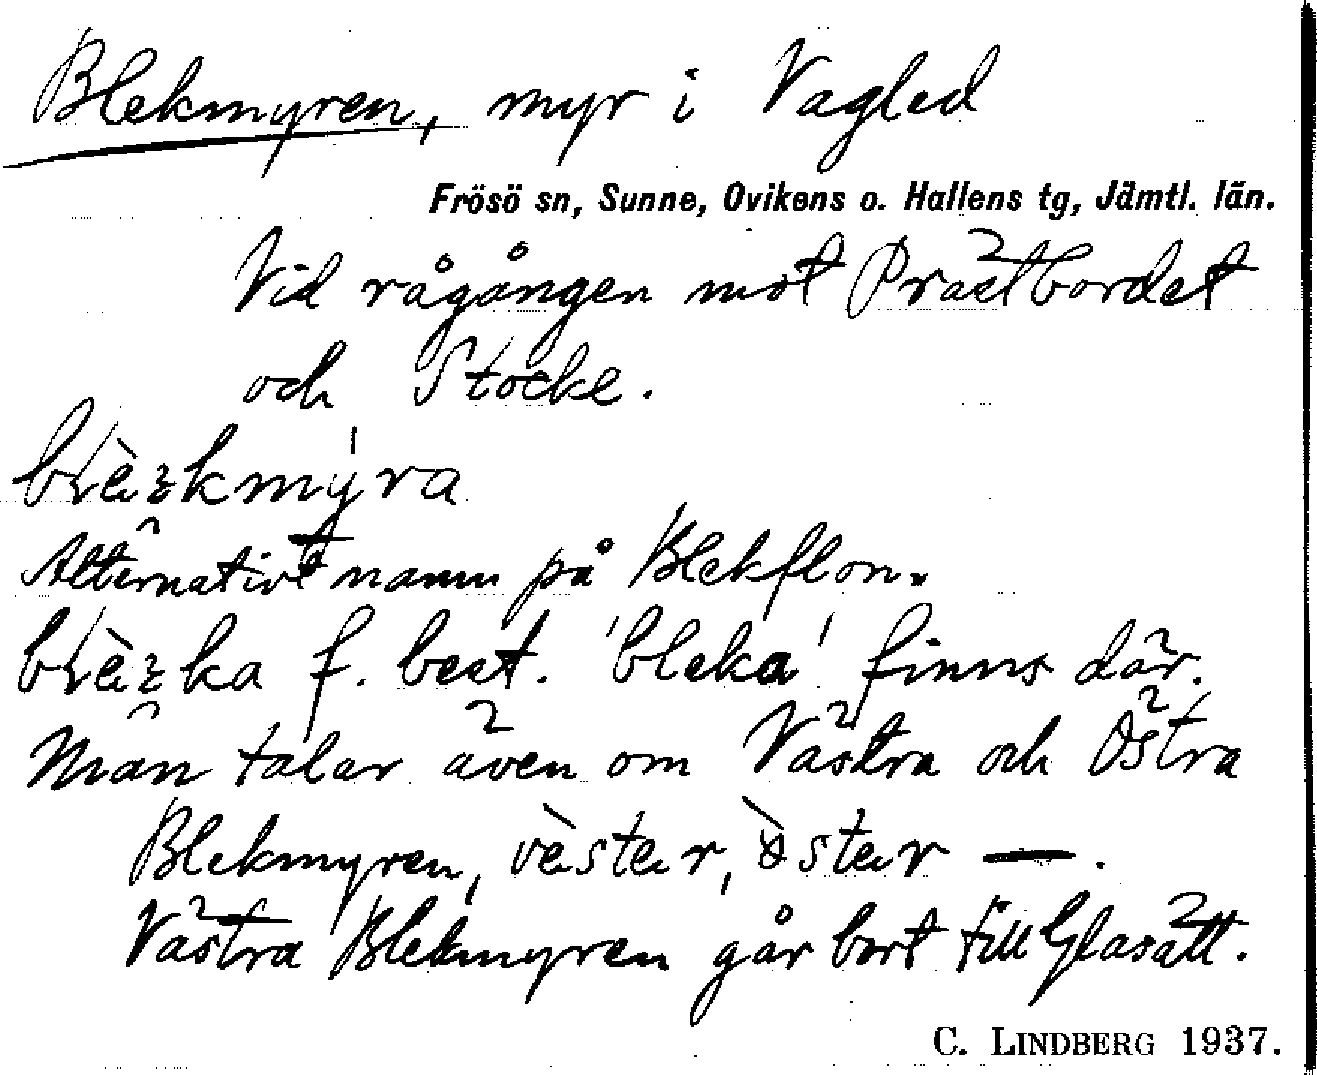 Blekmyren, myr i Vagled
Frösö sn, Sunne, Ovikens o. Hallens tg, Jämtl. län.
Vid rågången mot Prästbordet
och Stocke.
Alternativt namn på Blekflon.
f. best. 'bleka' finns där.
Man talar även om Västra och Östra
Blekmyren, vèster, òster —.
Västra Blekmyren går bort till Glasätt.
C. LINDBERG 1937.